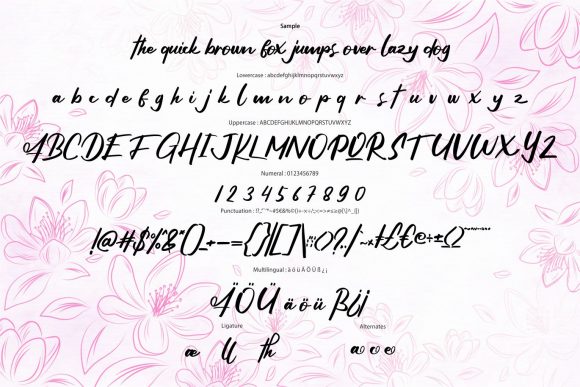 Sample
the quick brown fox jumps over lazy dog
Lowercase : abcdefghijklmnopqrstuvwxyz
a b c d e f g h i j k l m n o p q r s t u v w x y z
Uppercase : ABCDEFGHIJKLMNOPQRSTUVWXYZ
ABCDEFGHIJKLMNOPQRSTUVWXYZ
Numeral : 0123456789
1 2 3 4 5 6 7 8 9 0
Punctuation :
!@#$%^&*()_+-={}|[]\:";'<>?,./
Multilingual : ä ö ü Ä Ö Ü ß ¿ ¡
ÄÖÜ ä ö ü ß¿¡
Ligature Alternates
æ ll th a o e